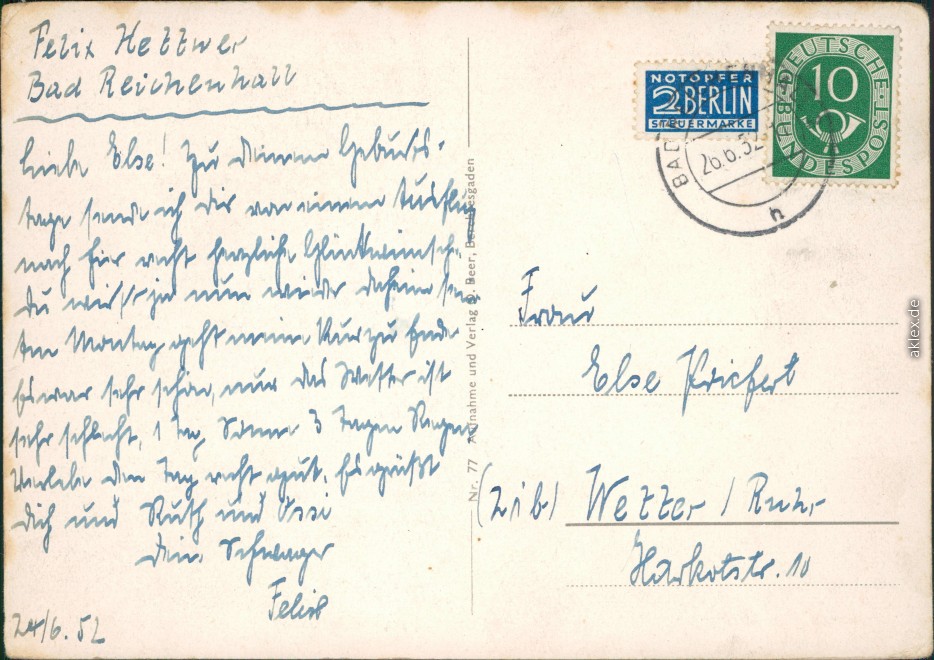 Felix Hettwer
Bad Reichenhall
Liebe Else! Zu deinem Geburts-
tage sende ich dir von einem Ausflug
nach hier recht herzliche Glückwünsche.
Du wirst ja nun wieder daheim sein.
Am Montag geht meine Kur zu Ende
Es war sehr schön, nur das Wetter ist
sehr schlecht, 1 Tag Sonne 3 Tagen Regen.
Verlebe den Tag recht gut. Es grüßt
dich und Ruth und Ossi
dein Schwager
Felix
24/6. 52
Nr. 77 Aufnahme und Verlag Beer, Berchtesgaden
NOTOPFER
2 BERLIN
STEUERMARKE
DEUTSCHE BUNDESPOST
10
BAD
26.6.52
h
Frau
Else Prichert
(21b) Wetter / Ruhr
Harkotstr. 10
aklex.de